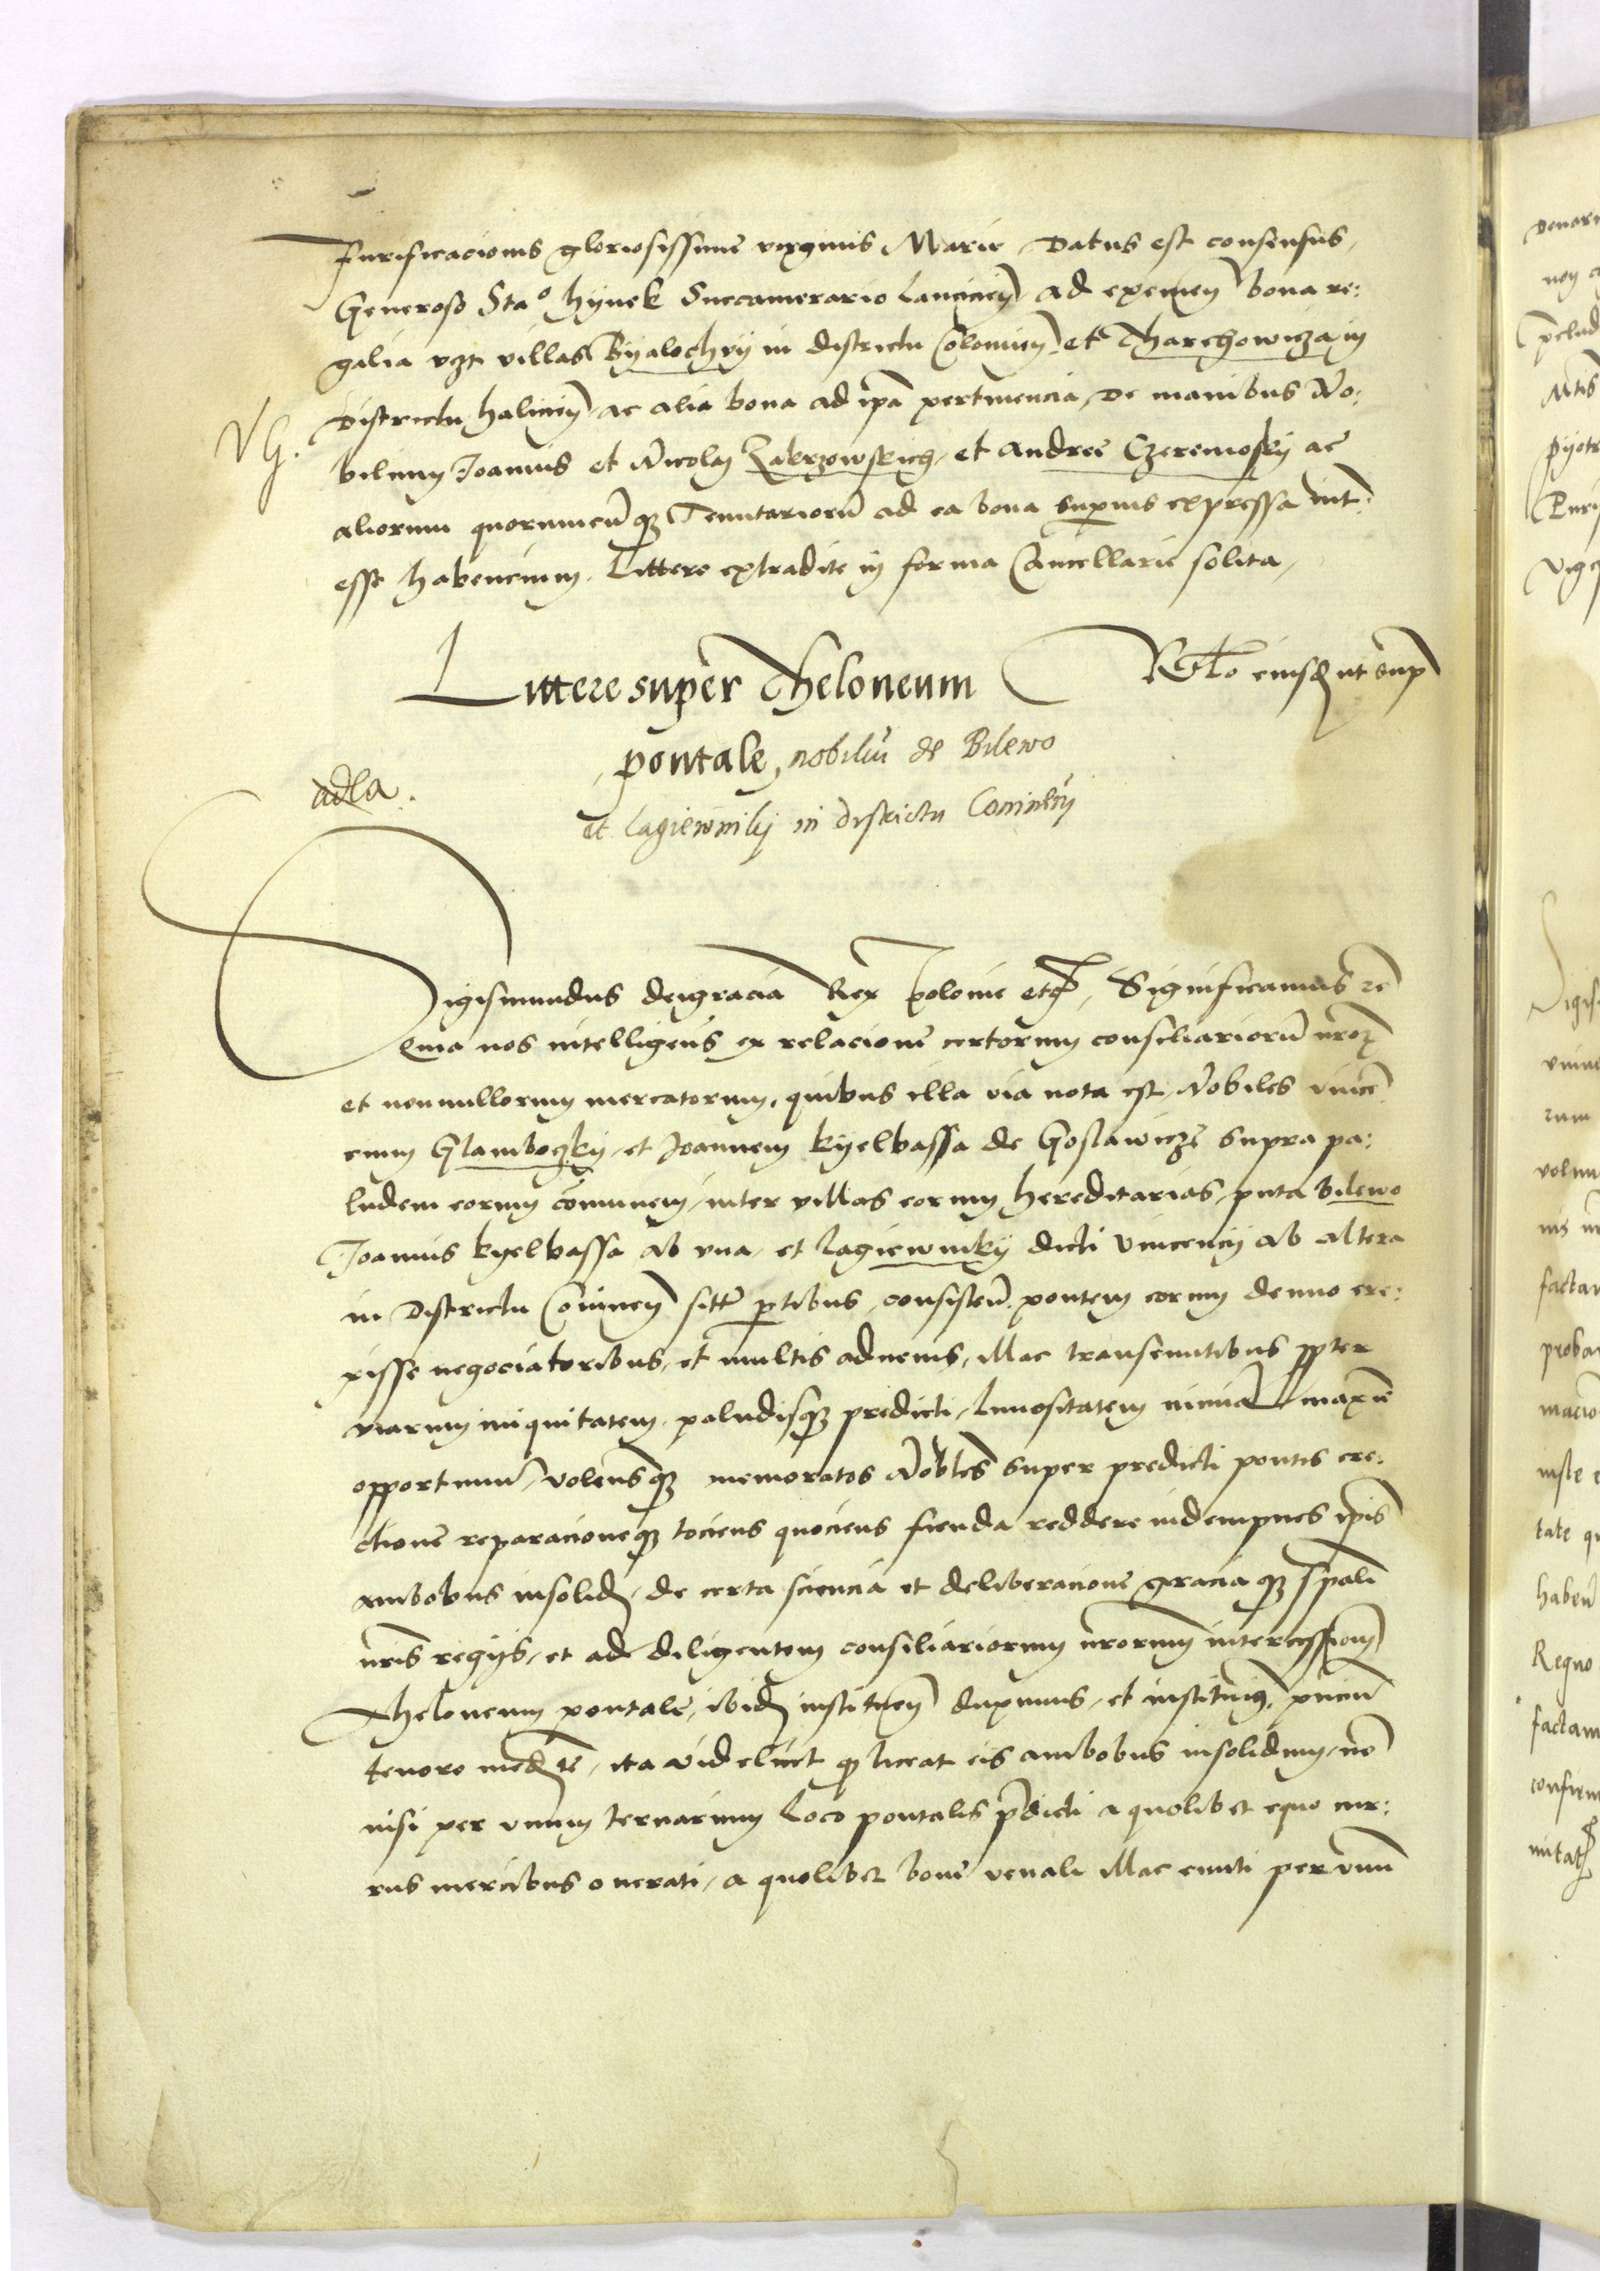 Purificacionis gloriosissime virginis Marie, Datus est consensus,
Generoso Sta° Hynek Succamerario Lancicien̄ ad eximen̄ bona re:
galia vzt villas Byalochry in districtu Colomien̄ et Tharchowicza in
Districtu Halicien̄ ac alia bona ad ip̄a pertinencia, De manibus No:
VG.
bilium Joannis et Nicolaj Zakrzowskich, et Andree Czeremosky ac
aliorum quorumcūq3 Tenutariorū ad ea bona superius expressa int:
esse habencium. Littere extradite in forma Cancellarie solita,
Littere super Theloneum
Rlō eiusd ut sup
pontale, nobiliū de Bilewo
adla.
et Lagiewniky in districtu Coninēn
Sigismundus dei gracia Rex Polonie etc, Significamus rc̄
Quia nos intelligens ex relacione certorum consiliariorū nr̄or
et nonnullorum mercatorum, quibus illa via nota est, Nobiles Vince
cium Glamboczky, et Joannem Kyelbassa de Goslawicze supra pa:
ludem eorum cōmunem, inter villas eorum hereditarias, puta Bilewo
Joannis Kyelbassa ab vna, et Lagiewniky dicti Vincencij ab altera
in Districtu Coninen̄ sitt̄ p̄tibus, consisten̄. pontem eorum denuo ere:
xisse negociatoribus, et multis aduenis, illac transeuntibus p̄pter
viarum iniquitatem, paludisq3 predicti, limositatem nimia maxīe
opportunū, volensq3 memoratos Nobiles super predicti pontis ere:
ctione reparacioneq3 tociens quociens fienda reddere indempnes ip̄is
ambobus insolid, de certa sciencia et deliberacione gracia q3 sp̄ali
nr̄is regijs, et ad diligentem consiliariorum nr̄orum intercessionem
Theloneum pontale, ibid instituen̄ duximus, et instituimus, p̄nciū
tenore med̄te, ita videlicet q liceat eis ambobus insolidum, nō
nisi per vnum ternarium Loco pontalis p̄dicti a quolibet equo cur:
rus mercibus onerati, a quolibet boue venali illac eunti per vnū